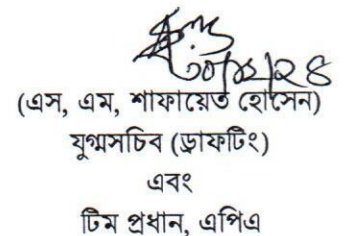 (এস, এম, শাফায়েত হোসেন)
যুগ্মসচিব (ড্রাফটিং)
এবং
টিম প্রধান, এপিএ